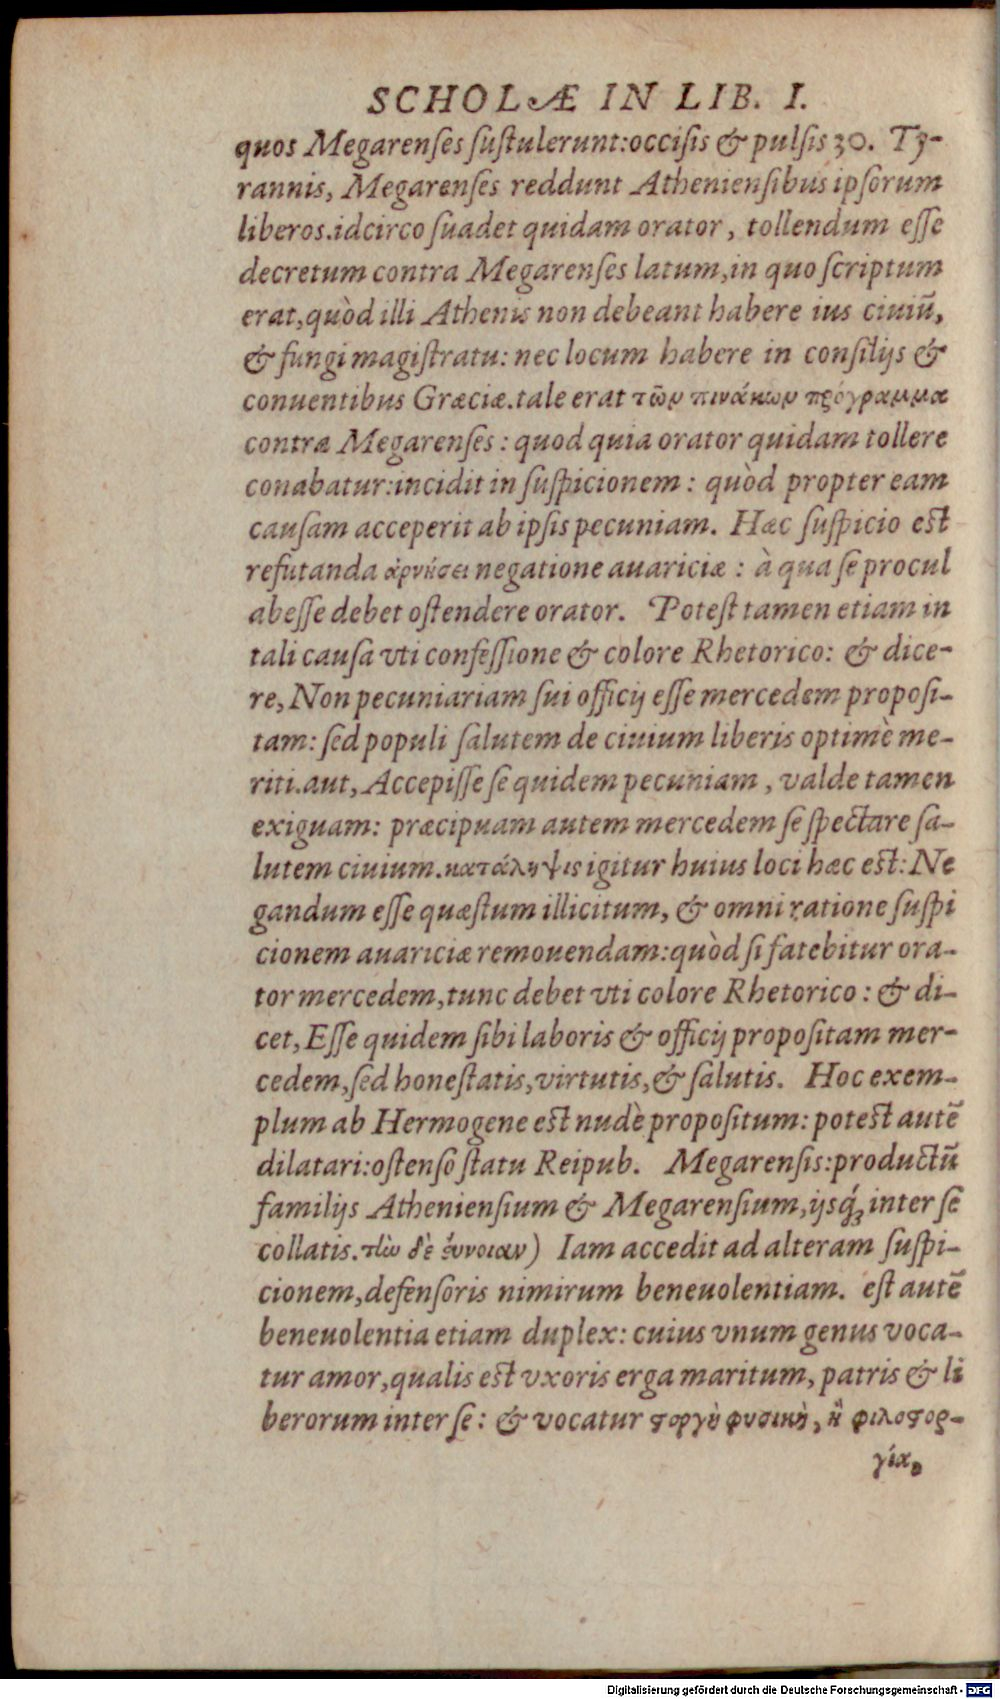 SCHOLÆ IN LIB. I.
quos Megarenſes ſuſtulerunt:occiſis & pulſis 30. Ty-
rannis, Megarenſes reddunt Athenienſibus ipſorum
liberos.idcirco ſuadet quidam orator, tollendum eſſe
decretum contra Megarenſes latum,in quo ſcriptum
erat,quòd illi Athenis non debeant habere ius ciuiū,
& fungi magiſtratu: nec locum habere in conſilijs &
conuentibus Græciæ.tale erat τῶν πινάκων πρόγραμμα
contra Megarenſes: quod quia orator quidam tollere
conabatur:incidit in ſuſpicionem: quòd propter eam
cauſam acceperit ab ipſis pecuniam. Hæc ſuſpicio eſt
refutanda ἀρνήσει negatione auariciæ: à qua ſe procul
abeſſe debet oſtendere orator. Poteſt tamen etiam in
tali cauſa vti confeſſione & colore Rhetorico: & dice-
re, Non pecuniariam ſui officij eſſe mercedem propoſi-
tam: ſed populi ſalutem de ciuium liberis optimè me-
riti.aut, Accepiſſe ſe quidem pecuniam, valde tamen
exiguam: præcipuam autem mercedem ſe ſpectare ſa-
lutem ciuium.κατάληψις igitur huius loci hæc eſt: Ne
gandum eſſe quæſtum illicitum, & omni ratione ſuſpi
cionem auariciæ remouendam:quòd ſi fatebitur ora-
tor mercedem,tunc debet vti colore Rhetorico: & di-
cet, Eſſe quidem ſibi laboris & officij propoſitam mer-
cedem,ſed honeſtatis,virtutis,& ſalutis. Hoc exem-
plum ab Hermogene eſt nudè propoſitum: poteſt autē
dilatari:oſtenſo ſtatu Reipub. Megarenſis:productū
familijs Athenienſium & Megarenſium,ijsq́; inter ſe
collatis.τὴν δὲ ἔννοιαν) Iam accedit ad alteram ſuſpi-
cionem,defenſoris nimirum beneuolentiam. eſt autē
beneuolentia etiam duplex: cuius vnum genus voca-
tur amor,qualis eſt vxoris erga maritum, patris & li
berorum inter ſe: & vocatur ϛοργὴ φυσικὴ, ἢ φιλοϛορ-
γία,
Digitalisierung gefördert durch die Deutsche Forschungsgemeinschaft - DFG